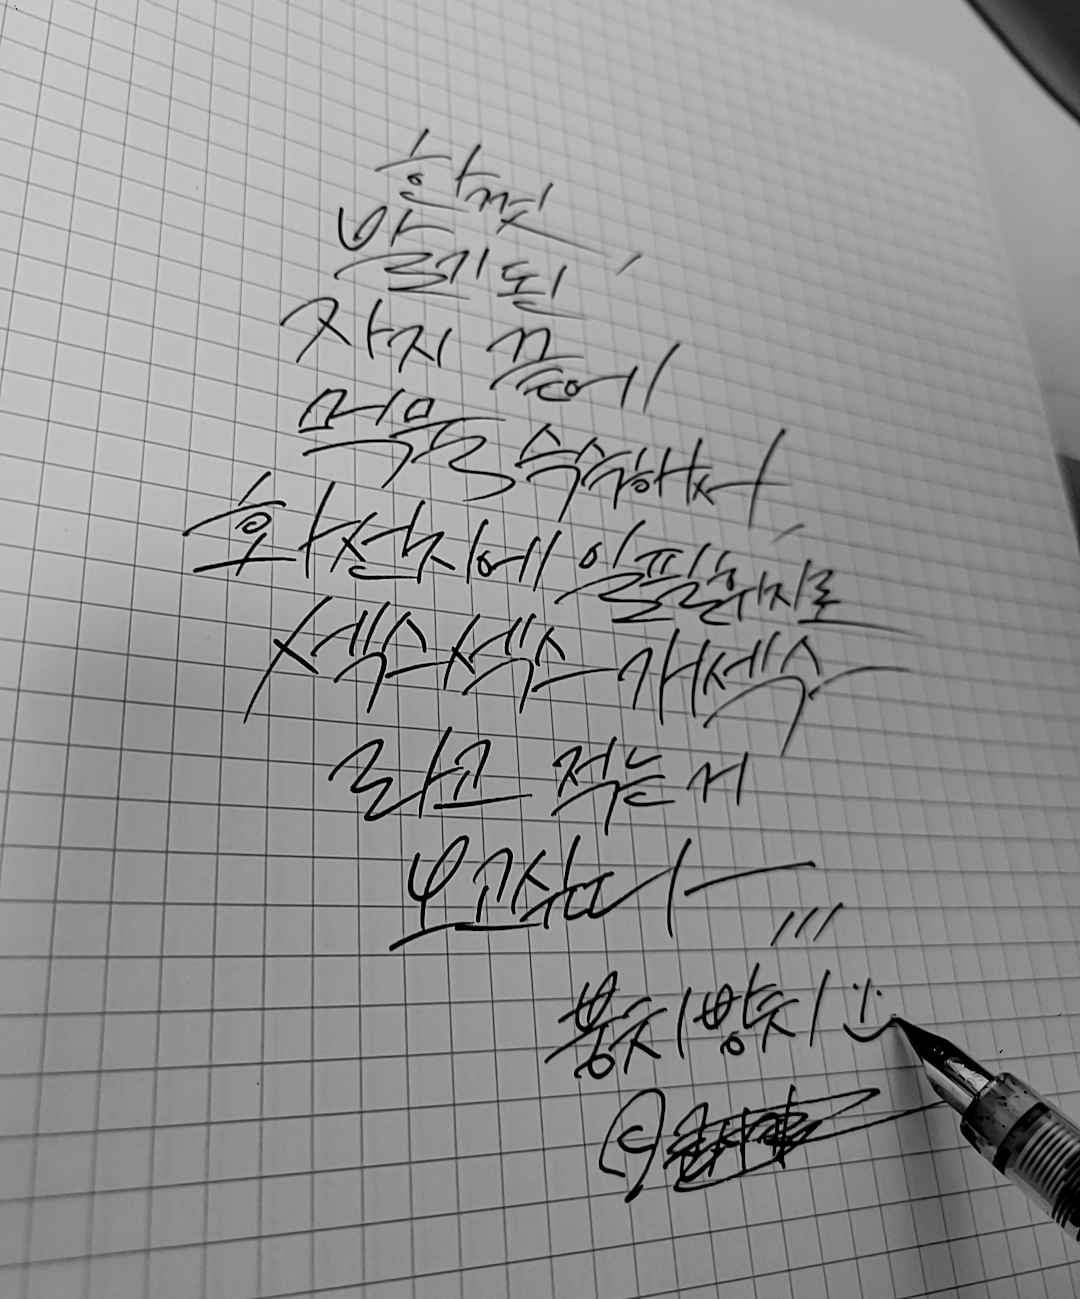 한껏,
발기 된
자지 끝에
먹물을 슥슥해서,
화선지에 일필휘지로
섹스섹스개섹스
라고 적는 거
보고싶다ㅡ
봉치방치 :)